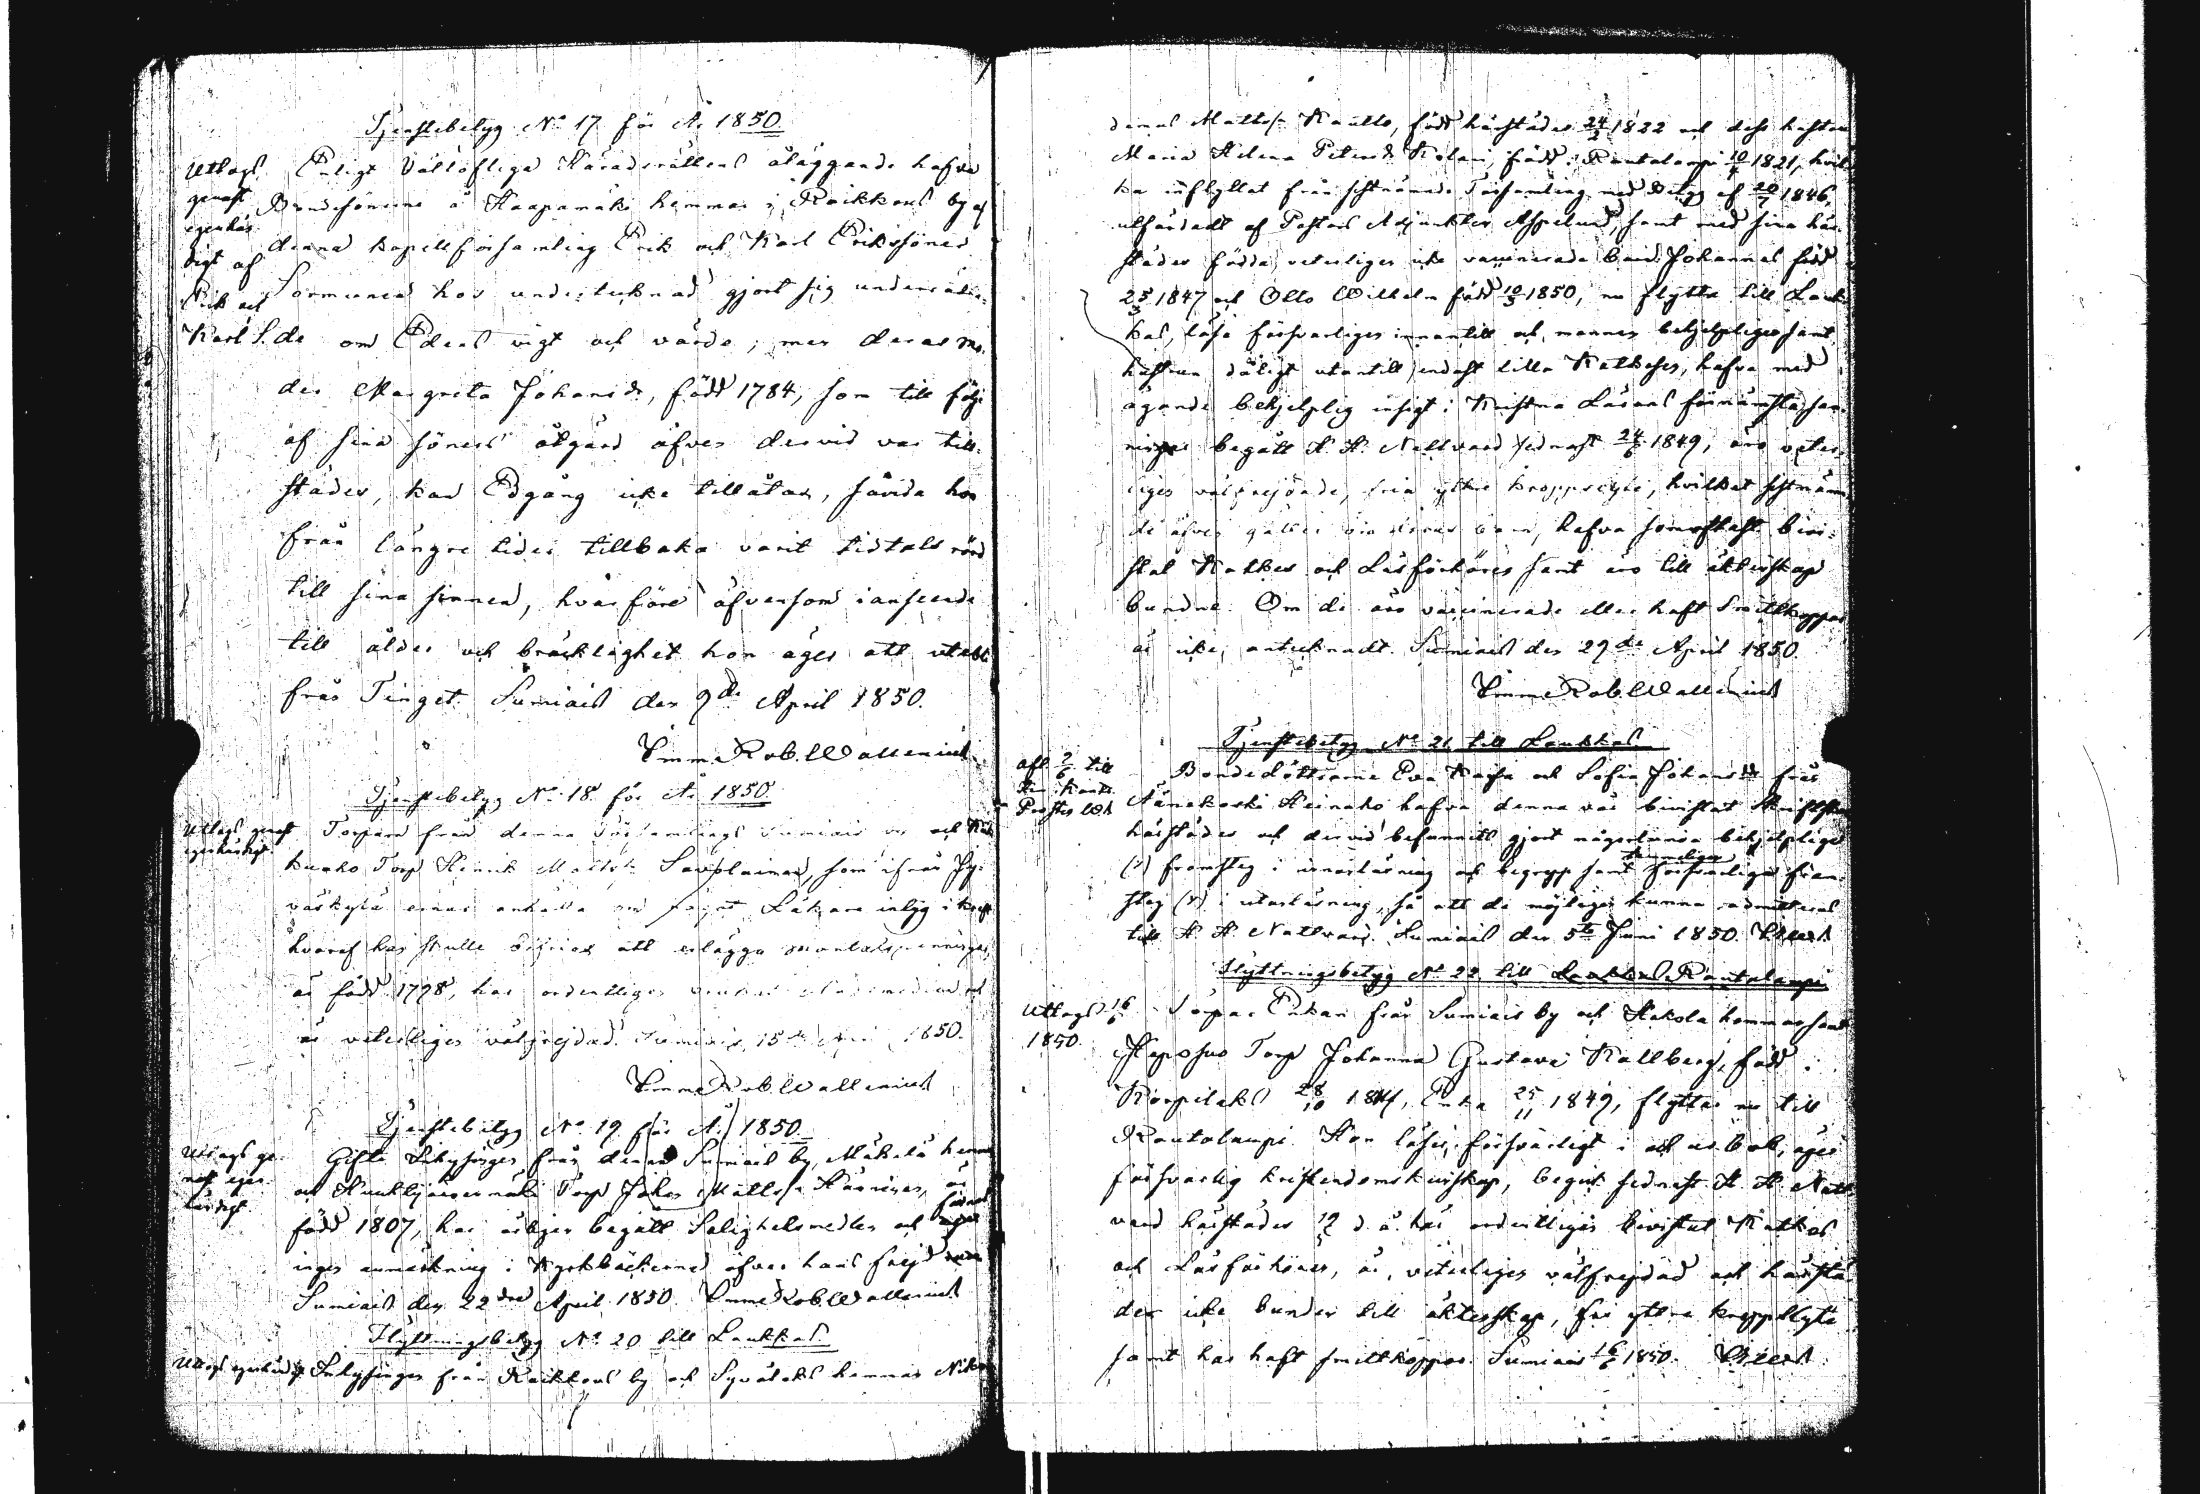 Tjenstebetyg No 17 för År 1850
Utlagt genast egenhändigt af Erik och Karl S.
Enligt Vällofliga Häradsrättens åläggande hafva
Bondesönerne å Haapamäki hemman i Raikkaus by af
denna kapellförsamling Erik och Karl Erikssöner
Sormunen hos undertecknad gjort sig underrätta-
de om Edens vigt och värde; men deras mo-
der Margreta Johansdr, född 1784, som till följe
af sina söners åtgärd äfven dervid var till-
städes, kan Edgång icke tillåtas, såvida hon
från längre tider tillbaka varit tidtals rörd
till sina sinnen, hvarföre äfvensom i anseende
till ålder och bräcklighet hon äger att utebli
från Tinget. Sumiais den 9de April 1850.
Rob. Wallenius
Tjenstebetyg No 18 för År 1850
Utlagt genast egenhändigt.
Torparen från denna Församlings Sumiais by och
Torp Henrik Matts. Savolainen, som ifrån Jy-
väskylä ernar anhålla om Läkare intyg
hvaraf han skulle att erlägga mantalspenningar,
är född 1798, har ordentligen
är veterligen välfrejdad. Sumiais 15de April 1850.
Rob. Wallenius
Tjenstebetyg No 19 för År 1850
Utlagt genast egenhändigt
Gifte Inhysingen från denna Sumiais by, Mäkelä hemman
och Torp Johan Mattss. Hänninen, är
född 1807, har årligen begått Salighetsmedlen och
ingen anmärkning i Kyrkböckerne öfver hans frejd
Sumiais den 22dra April 1850. Rob. Wallenius
Flyttningsbetyg No 20 till Laukkas
Utlagt egenhändigt
Inhysingen från Raikkaus by och Syvälaks hemman
Mattss. Kautto, född härstädes 24/2 1822 och dess hustru
Maria Helena Petersdr Kolari, född i Rautalampi 10/4 1821, hvil-
ka inflyttat från sistnämnde Församling med Betyg af 20/7 1846,
utfärdadt af Pastors Adjunkten Aspelund, samt med sina här-
städes födda, veterligen icke vaccinerade barn Johannes född
25/3 1847 och Otto Wilhelm född 10/3 1850, nu flytta till Lauk-
kas, läsa försvarligen innantill och mannen behjelpligen samt
hustrun dåligt utantill endast lilla Kateches, hafva med
ägande behjelplig insigt i Kristna Lärans förnämsta san-
ningar begått H. H. Nattvard sednast 24/6 1849, äro veter-
ligen välfrejdade, fria yttre kroppslyte, hvilket sistnämn-
de äfven gäller om deras barn, hafva bevi-
stat Katkes och Läsförhören samt äro till äktenskap
bundne. Om de äro vaccinerade eller haft Smittkoppor
är icke antecknadt. Sumiais den 29de April 1850.
Rob. Wallenius
Tjenstebetyg No 21 till Laukkas
Bondedöttrarne Eva Kajsa och Sofia Johansdr från
Äänekoski Heinaho hafva denna vår bivistat Skriftskolan
härstädes och dervid befunnits gjort någorlunda behjelplige
(x) framsteg i innanläsning och begrepp samt försvarlige fram-
steg (x) i utanläsning, så att de möjligen kunna admitteras
till H. H. Nattvard. Sumiais den 5te Juni 1850.
Flyttningsbetyg No 22 till Rautalampi
Utlagt 16/6 1850.
Torpare Enkan från Sumiais by och Hakola hemman samt
Torp Johanna Gustava Kallberg, född i
Korpilaks 28/10 1814, Enka 25/11 1849, flyttar nu till
Rautalampi. Hon läser försvarligt i och ur bok, äger
försvarlig kristendomskunskap, begick sednast H. H. Natt-
vard härstädes 19/5 d. å. har ordentligen bivistat Katkes
och Läsförhören, är veterligen välfrejdad och härstä-
des icke bunden till äktenskap, fri yttre kroppslyte
samt har haft smittkoppor. Sumiais 16/6 1850.